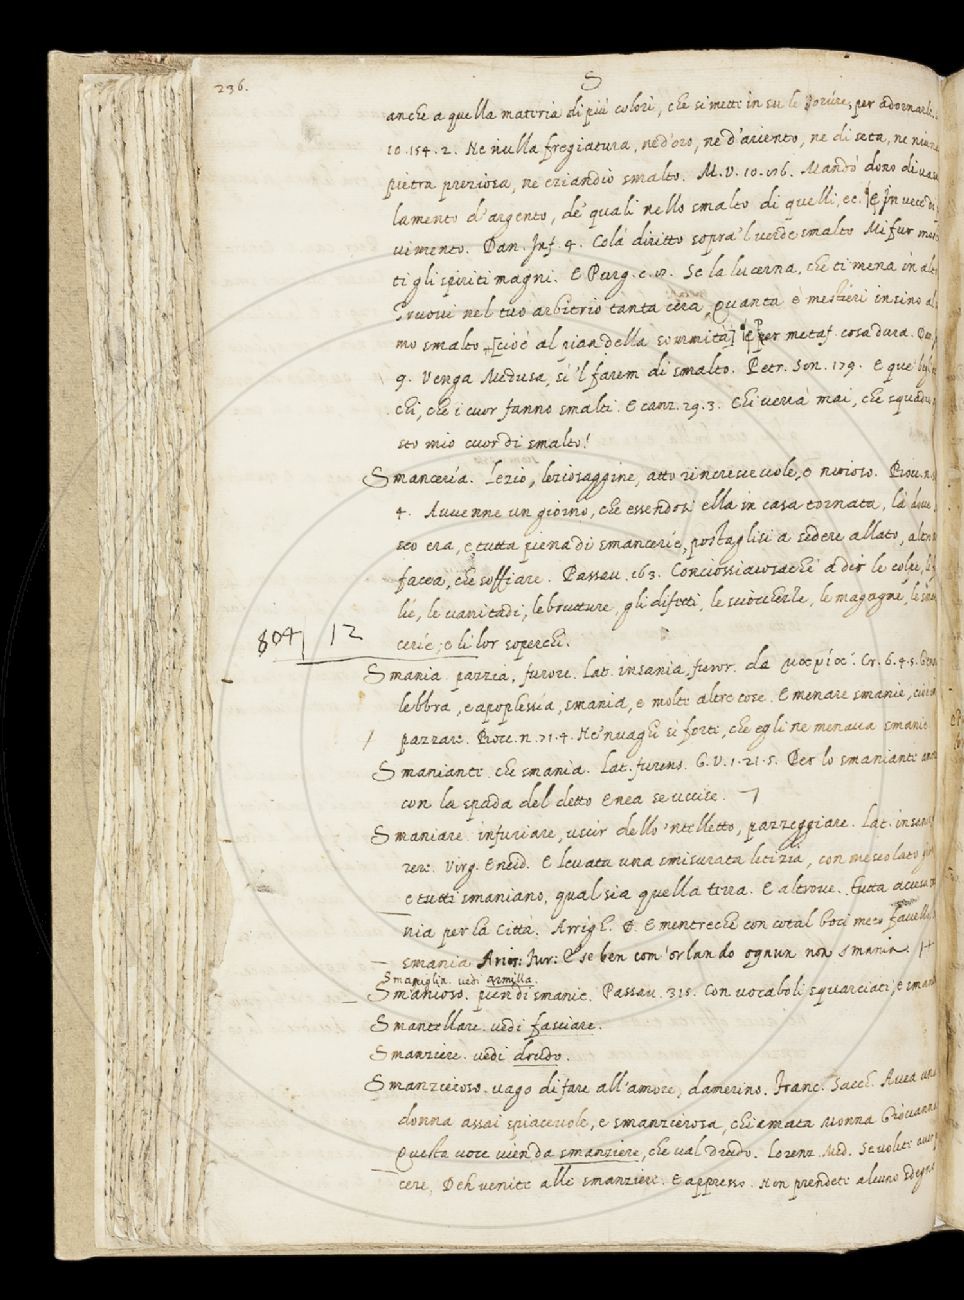 236.
S
anche a quella materia di più colori, che si mette in su le per adornarle.
10.154.2. Ne nulla fregiatura, ne d'oro, ne d'ariento, ne di seta, ne niuna
pietra preziosa, ne eziandio smalto. M.V. 10. Mandò dono di
lamento d'argento, de' quali nello smalto di quelli, ec. E In vece di
vimento. Dan. Inf. 4. Colà diritto sopra 'l verde smalto Mi fur
ti gli spiriti magni. E Purg. c. Se la lucerna, che ti mena in
Truovi nel tuo arbitrio tanta cera, Quanta è mestieri insino al
mo smalto [cioè al pian della sommità] E per metaf. cosa dura.
9. Venga Medusa, sì 'l farem di smalto. Petr. Son. 179. E que'
chi, che i cuor fanno smalti. E canz. 29.3. Chi verrà mai, che
sto mio cuor di smalto!
Smancería. Lezio, leziosaggine, atto rincrescevole, e noioso. Bocc. n.
4. Avvenne un giorno, che essendosi ella in casa tornata, là dove
sco era, e tutta piena di smancerìe, postaglisi a sedere allato, altro
facea, che soffiare. Passav. 163. Conciossiacosachè a dir le colpe,
lie, le vanitadi, le brutture, gli difetti, le sciocchezze, le magagne, le
cerìe, e li lor soperchi.
804 | 12
Smania. pazzia, furore. Lat. insania, furor. da Cr. 6.4.5.
lebbra, e apoplessìa, smania, e molte altre cose. E menare smanie,
pazzare. Bocc. n. 71.4. Ne' nvaghì sì forte, che egli ne menava smanie
Smaniante. che smania. Lat. furens. G.V. 1.21.5. Per lo smaniante
con la spada del detto Enea se uccise.
Smaniare. infuriare, uscir dello 'ntelletto, pazzeggiare. Lat.
rere. Virg. Eneid. E levata una smisurata letizia, con mescolato
e tutti smaniano, qual sia quella terra. E altrove. tutta accesa
nia per la Città. Arrigh. E mentreche con cotal boci meco favella,
smania Arios: Fur: E se ben com' Orlando ognun non smania.
Smaniglia. vedi armilla.
Smanioso. pien di smanie. Passav. 315. Con vocaboli squarciati, e
Smantellare. vedi fasciare.
Smanziere. vedi drudo.
Smanzieroso. vago di fare all'amore, damerino. Franc. Sacch. Avea una
donna assai spiacevole, e smanzierosa, chiamata Monna Giovanna
Questa voce vien da smanziere, che val drudo. Lorenz. Med. Se volete
cere, Deh venite alle smanziere. E appresso. Non prendete alcuno sdegno